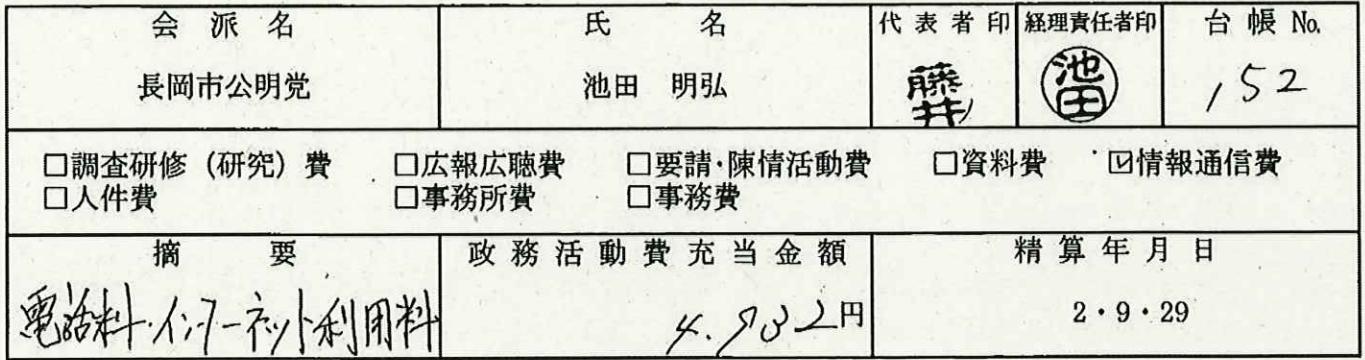 会派名 氏名 代表者印 経理責任者印 台帳 No.
長岡市公明党 池田 明弘 藤井 池田 152
□調査研修（研究）費 □広報広聴費 □要請・陳情活動費 □資料費 ☑情報通信費
□人件費 □事務所費 □事務費
摘要 政務活動費充当金額 精算年月日
電話料・インターネット利用料 4,932円 2・9・29